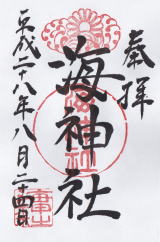 奉拝
海神社
平成二十八年八月二十四日